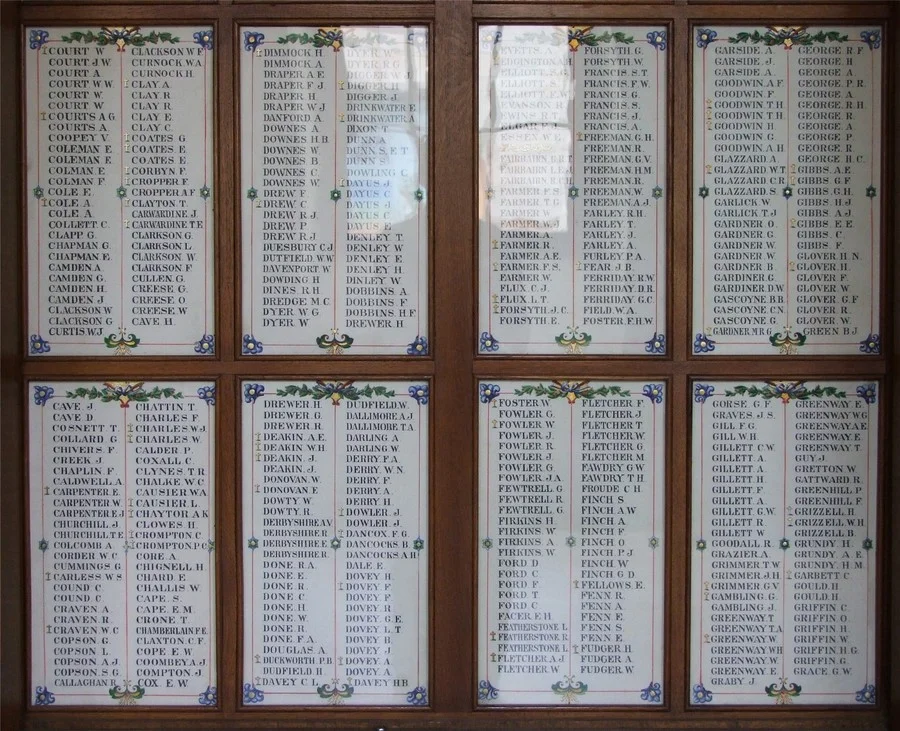 COURT W
COURT J.W
COURT A
COURT W.W
COURT W
COURT W
COURTS A.G
COURTS A.
COOPEY V
COLEMAN E
COLEMAN E.
COLMAN E
COLMAN F
COLE E
COLE A.
COLE A.
COLLETT C.
CLAPP G.
CHAPMAN G.
CHAPMAN E.
CAMDEN A
CAMDEN G.
CAMDEN H.
CAMDEN J
CLACKSON W
CLACKSON G
CURTIS W.J
CLACKSON W F
CURNOCK W.A
CURNOCK H.
CLAY A.
CLAY R
CLAY R.
CLAY E.
CLAY C.
COATES G
COATES E.
COATES E
CORBYN F.
CROPPER F.
CROPPER A.F
CLAYTON. T.
CARWARDINE J.
CARWARDINE T.E
CLARKSON G.
CLARKSON L
CLARKSON W
CLARKSON F
CULLEN. G.
CREESE G.
CREESE O.
CREESE W
CAVE H.
DIMMOCK H
DIMMOCK. A
DRAPER. A E
DRAPER. F J
DRAPER H
DRAPER. W J
DANFORD. A
DOWNES A
DOWNES H.B
DOWNES W
DOWNES B
DOWNES C
DOWNES W
DREW F
DREW C
DREW R J
DREW. P
DREW R J
DUESBURY C.J
DUTFIELD. W.W
DAVENPORT W
DOWDING H
DINES R H
DREDGE M C
DYER W.G
DYER W
DYER W.
DYER R G
DIGGER W J
DIGGER H
DIGGER. J
DRINKWATER E
DRINKWATER A
DIXON T
DUNN A
DUNN S. E T
DUNN S
DOWLING C
DAYUS J
DAYUS C
DAYUS J
DAYUS C
DAYUS E
DENLEY T.
DENLEY W
DENLEY E
DENLEY H
DINLEY W
DOBBINS A
DOBBINS F.
DOBBINS H.F
DREWER H
ELLIOTT
EVANSON
FARMER F S
FARMER. T G
FARMER W
FARMER W.J
FARMER. A.
FARMER R.
FARMER A.E.
FARMER F.S.
FARMER W.
FLUX C.J
FLUX L T.
FORSYTH J.C
FORSYTH E.
FORSYTH G.
FORSYTH W.
FRANCIS S.T
FRANCIS F.W.
FRANCIS G.
FRANCIS S.
FRANCIS J.
FRANCIS. A.
FREEMAN G.H.
FREEMAN R.
FREEMAN G.V
FREEMAN H.M
FREEMAN R.
FREEMAN W
FREEMAN A J
FARLEY R.H.
FARLEY T.
FARLEY J.
FARLEY A.
FURLEY P.A.
FEAR J B.
FERRIDAY R.W
FERRIDAY D.R.
FERRIDAY G.C
FIELD W.A.
FOSTER F.H.W.
GARSIDE. A
GARSIDE. J.
GARSIDE. A.
GOODWIN A F
GOODWIN E.
GOODWIN T.H
GOODWIN T.H
GOODWIN H
GOODWIN G.
GOODWIN A.H
GLAZZARD A
GLAZZARD W.T
GLAZZARD C.R
GLAZZARD. S
GARLICK W
GARLICK T.J
GARDNER O.
GARDNER G.
GARDNER W.
GARDNER W
GARDNER B
GARDNER G.
GARDINER D.W
GASCOYNE B.B.
GASCOYNE C.N.
GASCOYNE G
GARDNER M.R G
GEORGE R F
GEORGE. H
GEORGE A
GEORGE P. R.
GEORGE. G.
GEORGE. R.H.
GEORGE A
GEORGE A
GEORGE P.
GEORGE R
GEORGE H.C.
GIBBS A.E
GIBBS G.F
GIBBS G.H
GIBBS H.J
GIBBS A.J
GIBBS E E
GIBBS C
GIBBS. F
GLOVER. H. N
GLOVER. H.
GLOVER F.
GLOVER. W.
GLOVER. G.F
GLOVER W
GLOVER R.
GREEN B J
CAVE J
CAVE D
COSNETT T.
COLLARD G
CHIVERS F.
CREEK J.
CHAPLIN. F.
CALDWELL A.
CARPENTER E.
CARPENTER W.
CARPENTER E.J
CHURCHILL. J
CHURCHILL. T.E
COLCOMB A
CORDER W.C
CUMMINGS G.
CARLESS W.S
COUND C
COUND C
CRAVEN A
CRAVEN. R.
CRAVEN W.C
COPSON G.
COPSON L
COPSON A.J
COPSON. S.G
CALLAGHAN R
CHATTIN. T
CHARLES F.
CHARLES W.J.
CHARLES W.
CALDER P
COXALL C
CLYNES. T. R
CHALKE W.C
CAUSIER W.A
CAUSIER L
CHAYTOR A.K
CLOWES. H.
CROMPTON C.
CROMPTON P.C
CORE A.
CHIGNELL H
CHARD. E
CHALLIS W
CAPE. S.
CAPE. E.M.
CRONE T.
CHAMBERLAIN F.E
CLAXTON C F
COPE E W
COOMBEY A.J
COMPTON. J
COX E W
DREWER H.
DREWER G.
DREWER R.
DEAKIN. A.E.
DEAKIN W.H
DEAKIN. J.
DONOVAN. W
DONOVAN E
DOWTY W
DOWTY. H.
DERBYSHIRE A.V
DERBYSHIRE W
DERBYSHIRE E
DERBYSHIRE R
DONE R.A
DONE E.
DONE R.
DONE C
DONE H
DONE W.
DONE R.
DONE F.A
DOUGLAS A.
DUCKWORTH P.B
DUDFIELD H
DAVEY C L
DUDFIELD.W.
DALLIMORE A J
DALLIMORE T.A
DARLING A
DARLING W
DERRY. F.A
DERRY. W. N
DERRY. F
DERRY A.
DERRY. H
DOWLER J.
DOWLER. J.
DANCOX. F.G
DANCOCKS B
DANCOCKS A H
DALE. E
DOVEY. H.
DOVEY. J
DOVEY. F
DOVEY. R
DOVEY. G.E.
DOVEY. L. T
DOVEY. B
DOVEY. J
DOVEY. A
DOVEY. A
DAVEY H.B
FOSTER W
FOWLER. G.
FOWLER W
FOWLER. J.
FOWLER. R
FOWLER. J.
FOWLER G.
FOWLER J.A
FEWTRELL G
FEWTRELL R.
FEWTRELL. G.
FIRKINS H
FIRKINS. W.
FIRKINS A
FIRKINS. W
FORD D
FORD C
FORD F
FORD T
FORD. C
FACER E.H
FEATHERSTONE L
FEATHERSTONE R.
FEATHERSTONE L
FLETCHER A J
FLETCHER W.
FLETCHER F
FLETCHER J
FLETCHER T
FLETCHER W.
FLETCHER G
FLETCHER M
FAWDRY G W
FAWDRY T H
FROUDE C H
FINCH S
FINCH A.W
FINCH A
FINCH F
FINCH O
FINCH P J
FINCH W
FINCH G D
FELLOWS. E.
FENN R.
FENN A.
FENN E
FENN S
FENN E
FUDGER. H
FUDGER A.
FUDGER W
GORSE G.F
GRAVES. J. S
GILL F.G.
GILL W.H.
GILLETT C.W.
GILLETT A.
GILLETT A
GILLETT. H
GILLETT. F
GILLETT A
GILLETT G.W.
GILLETT R
GILLETT W
GOODALL. R
GRAZIER. A
GRIMMER T.W
GRIMMER J.H
GRIMMER G.V
GAMBLING. G.
GAMBLING. J.
GREENWAY. T
GREENWAY T.A
GREENWAY. W
GREENWAY W.H
GREENWAY W.
GREENWAY. E
GRABY. J
GREENWAY. E.
GREENWAY W.G
GREENWAY A.E
GREENWAY E.
GREENWAY T.
GUY. J
GRETTON. W
GATTWARD R.
GREENHILL P
GREENHILL F.
GRIZZELL H.
GRIZZELL W.H.
GRIZZELL B
GRUNDY H.
GRUNDY. A. E
GRUNDY. H. M
GARBETT C
GOULD. H
GOULD. H.
GRIFFIN C.
GRIFFIN O.
GRIFFIN. H.
GRIFFIN. W
GRIFFIN. H.G
GRIFFIN. G.
GRACE G.W.